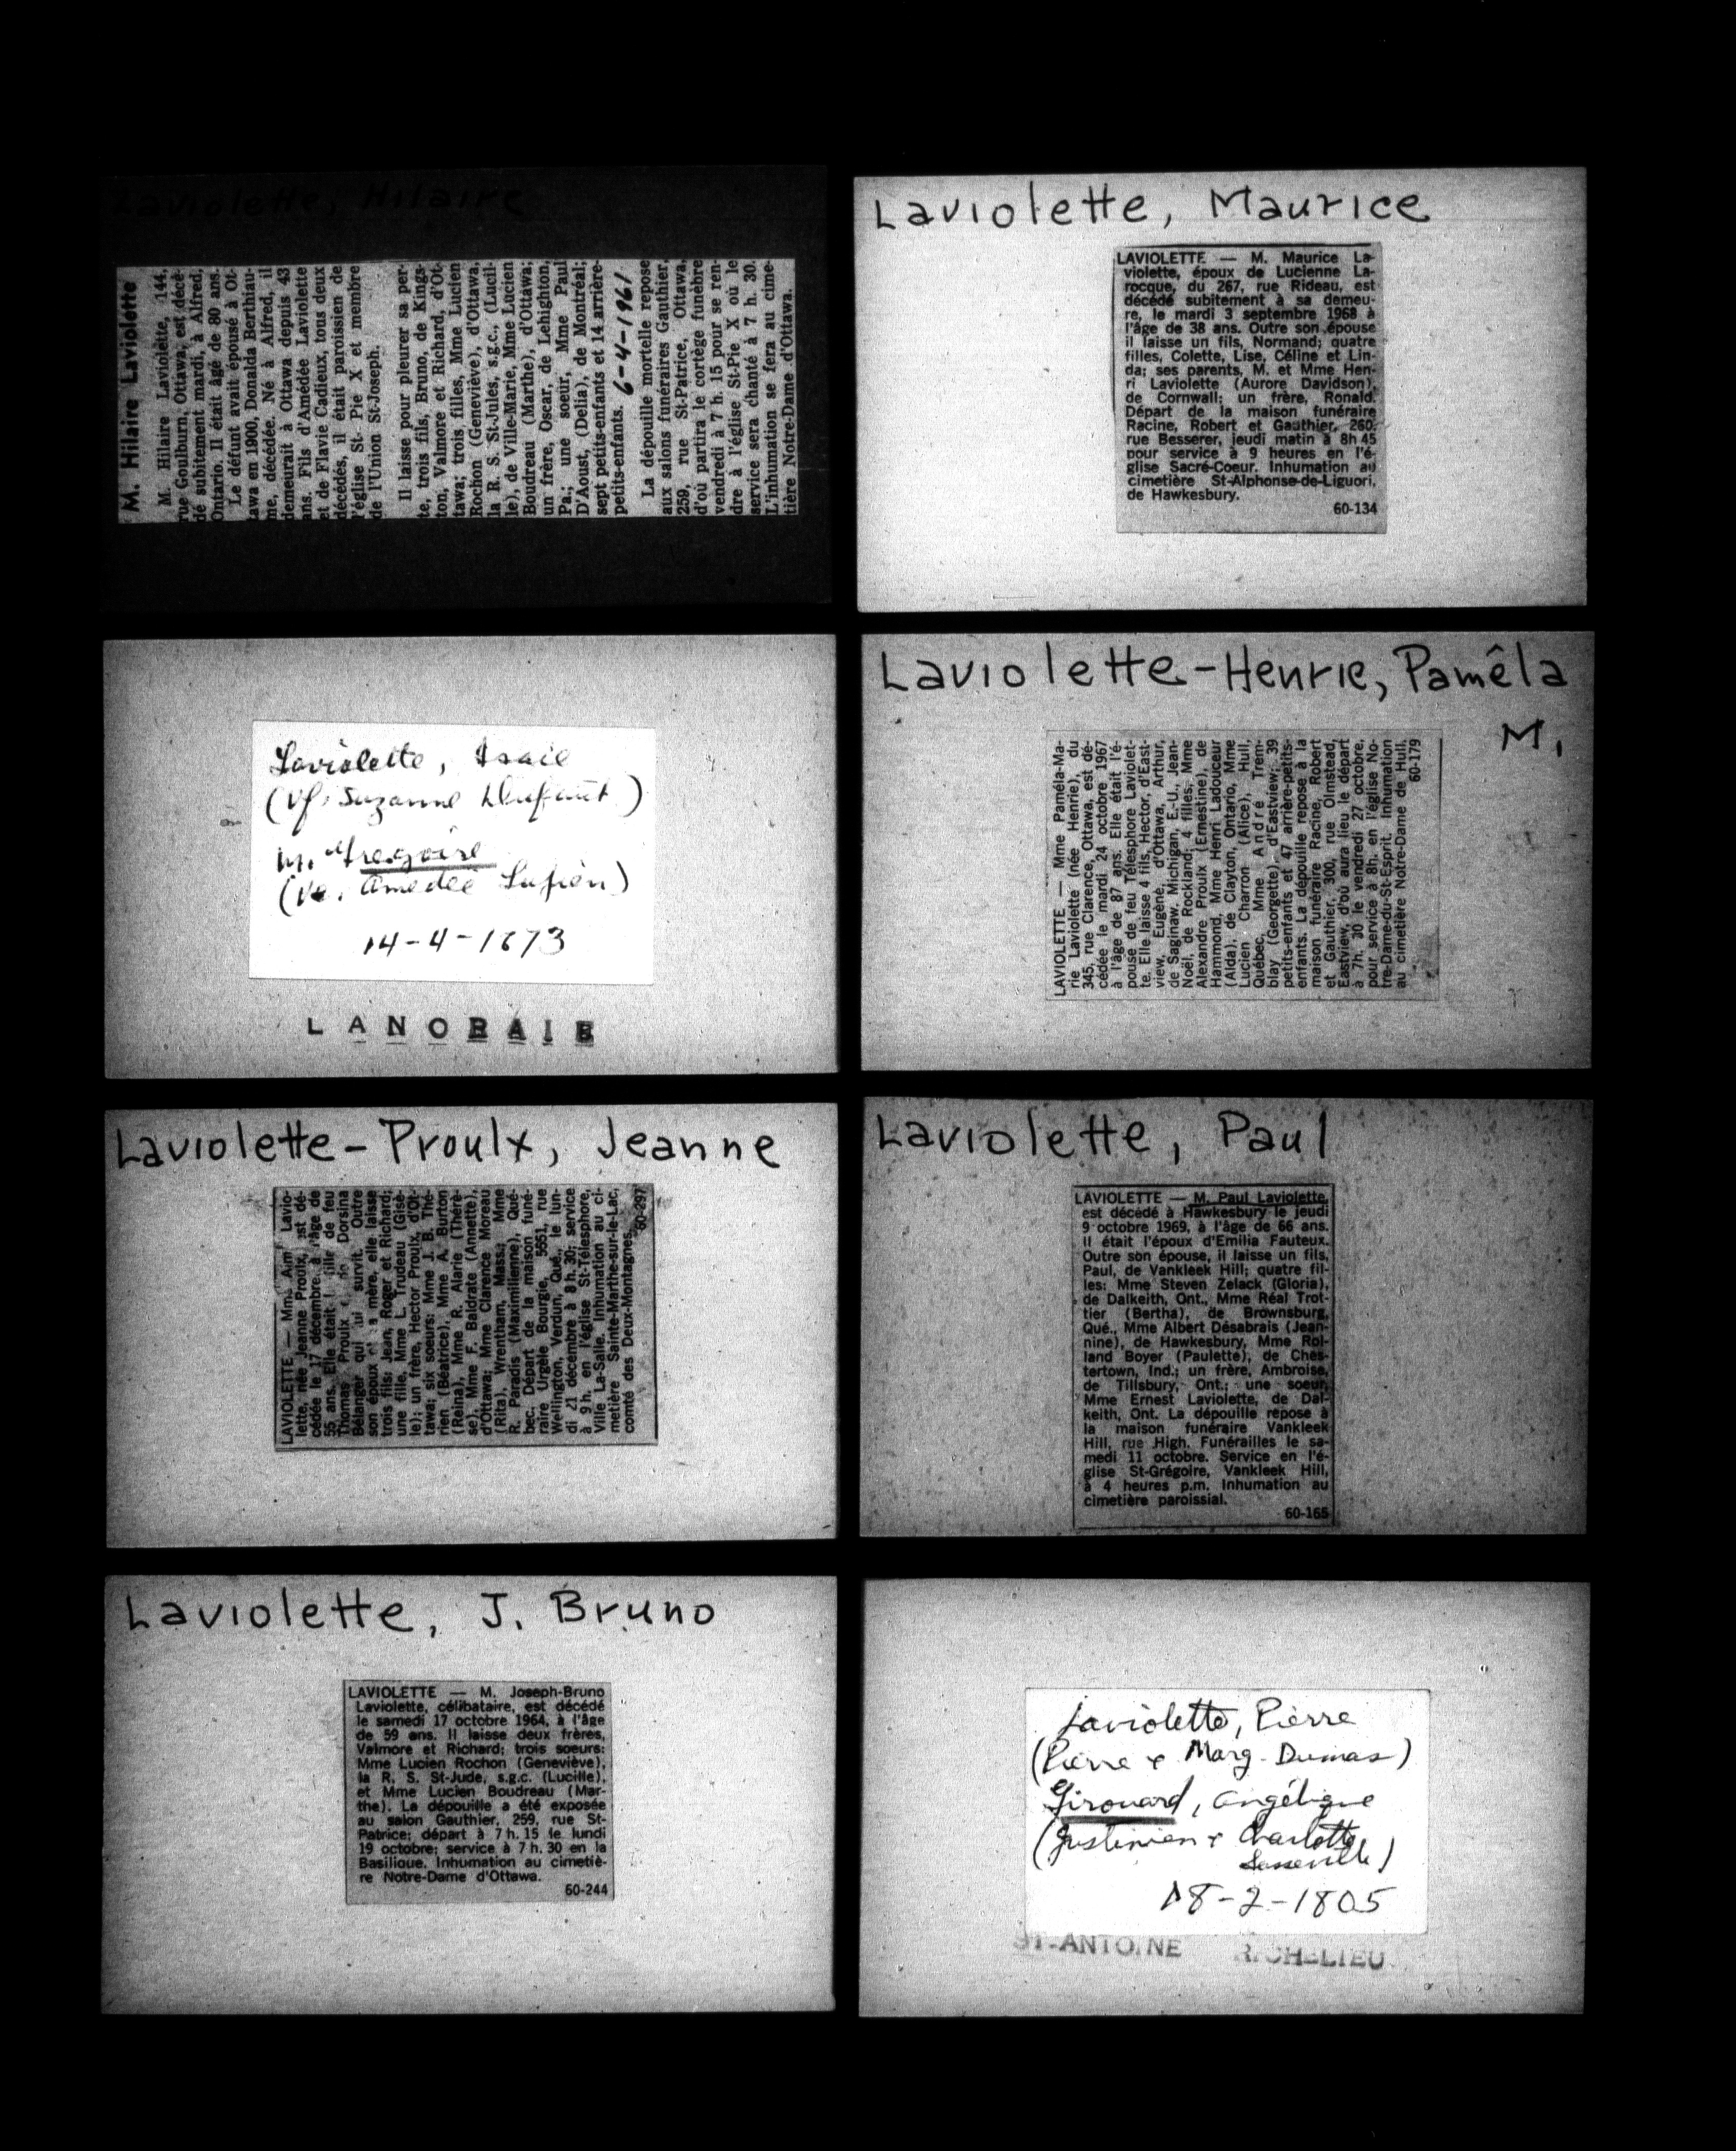 Laviolette, Hilaire
M. Hilaire Laviolette
M. Hilaire Laviolette, 144,
rue Goulburn, Ottawa, est décé-
dé subitement mardi, à Alfred,
Ontario. Il était âgé de 80 ans.
Le défunt avait épousé à Ot-
tawa en 1900, Donalda Berthiau-
me, décédée. Né à Alfred, il
demeurait à Ottawa depuis 43
ans. Fils d'Amédée Laviolette
et de Flavie Cadieux, tous deux
décédés, il était paroissien de
l'église St- Pie X et membre
de l'Union St-Joseph.
Il laisse pour pleurer sa per-
te, trois fils, Bruno, de Kings-
ton, Valmore et Richard, d'Ot-
tawa; trois filles, Mme Lucien
Rochon (Geneviève), d'Ottawa,
la R. S. St-Jules, s.g.c., (Lucil-
le), de Ville-Marie, Mme Lucien
Boudreau (Marthe), d'Ottawa;
un frère, Oscar, de Lehighton,
Pa.; une soeur, Mme Paul
D'Aoust, (Delia), de Montréal;
sept petits-enfants et 14 arrière-
petits-enfants. 6-4-1961
La dépouille mortelle repose
aux salons funéraires Gauthier,
259, rue St-Patrice, Ottawa,
d'où partira le cortège funèbre
vendredi à 7 h. 15 pour se ren-
dre à l'église St-Pie X où le
service sera chanté à 7 h. 30.
L'inhumation se fera au cime-
tière Notre-Dame d'Ottawa.
Laviolette, Maurice
LAVIOLETTE — M. Maurice La-
violette, époux de Lucienne La-
rocque, du 267, rue Rideau, est
décédé subitement à sa demeu-
re, le mardi 3 septembre 1968 à
l'âge de 38 ans. Outre son épouse
il laisse un fils, Normand; quatre
filles, Colette, Lise, Céline et Lin-
da; ses parents, M. et Mme Hen-
ri Laviolette (Aurore Davidson),
de Cornwall; un frère, Ronald.
Départ de la maison funéraire
Racine, Robert et Gauthier, 260,
rue Besserer, jeudi matin à 8h 45
pour service à 9 heures en l'é-
glise Sacré-Coeur. Inhumation au
cimetière St-Alphonse-de-Liguori,
de Hawkesbury.
60-134
Laviolette, Isaie
(Vf. Suzanne Dufault)
m. Gregoire
(Ve. Amedée Lafren)
14-4-1873
LANORAIE
Laviolette-Henrie, Paméla
M.
LAVIOLETTE — Mme Paméla-Ma-
rie Laviolette (née Henrie), du
345, rue Clarence, Ottawa, est dé-
cédée le mardi 24 octobre 1967
à l'âge de 87 ans. Elle était l'é-
pouse de feu Télesphore Laviolet-
te. Elle laisse 4 fils, Hector, d'East-
view, Eugène, d'Ottawa, Arthur,
de Saginaw, Michigan, E.-U., Jean-
Noël, de Rockland; 4 filles, Mme
Alexandre Proulx (Ernestine), de
Hammond, Mme Henri Ladouceur
(Alda), de Clayton, Ontario, Mme
Lucien Charron (Alice), Hull,
Québec, Mme André Trem-
blay (Georgette), d'Eastview; 39
petits-enfants et 47 arrière-petits-
enfants. La dépouille repose à la
maison funéraire Racine, Robert
et Gauthier, 300, rue Olmstead,
Eastview, d'où aura lieu le départ
à 7h. 30 le vendredi 27 octobre,
pour service à 8h. en l'église No-
tre-Dame-du-St-Esprit. Inhumation
au cimetière Notre-Dame de Hull.
60-179
Laviolette-Proulx, Jeanne
LAVIOLETTE — Mme Aimé Lavio-
lette, née Jeanne Proulx, est dé-
cédée le 17 décembre à l'âge de
55 ans. Elle était fille de feu
Thomas Proulx Dorsina
Bélanger qui lui survit. Outre
son époux et sa mère, elle laisse
trois fils: Jean, Roger et Richard;
une fille, Mme L. Trudeau (Gisè-
le); un frère, Hector Proulx, d'Ot-
tawa; six soeurs: Mme J. B. Thé-
rien (Béatrice), Mme A. Burton
(Reina), Mme R. Alarie (Thérè-
se), Mme F. Baldrate (Annette),
d'Ottawa; Mme Clarence Moreau
(Rita), Wrentham, Mass.; Mme
R. Paradis (Maximilienne), Qué-
bec. Départ de la maison funé-
raire Urgèle Bourgie, 5651, rue
Wellington, Verdun, Qué., le lun-
di 21 décembre à 8 h. 30; service
à 9 h. en l'église St-Télesphore,
Ville La-Salle. Inhumation au ci-
metière Sainte-Marthe-sur-le-Lac,
comté des Deux-Montagnes.
60-297
Laviolette, Paul
LAVIOLETTE — M. Paul Laviolette,
est décédé à Hawkesbury le jeudi
9 octobre 1969, à l'âge de 66 ans.
Il était l'époux d'Emilia Fauteux.
Outre son épouse, il laisse un fils,
Paul, de Vankleek Hill; quatre fil-
les: Mme Steven Zelack (Gloria),
de Dalkeith, Ont., Mme Réal Trot-
tier (Bertha), de Brownsburg,
Qué., Mme Albert Désabrais (Jean-
nine), de Hawkesbury, Mme Rol-
land Boyer (Paulette), de Ches-
tertown, Ind.; un frère, Ambroise,
de Tillsbury, Ont.; une soeur,
Mme Ernest Laviolette, de Dal-
keith, Ont. La dépouille repose à
la maison funéraire Vankleek
Hill, rue High. Funérailles le sa-
medi 11 octobre. Service en l'é-
glise St-Grégoire, Vankleek Hill,
à 4 heures p.m. Inhumation au
cimetière paroissial.
60-165
Laviolette, J. Bruno
LAVIOLETTE — M. Joseph-Bruno
Laviolette, célibataire, est décédé
le samedi 17 octobre 1964, à l'âge
de 59 ans. Il laisse deux frères,
Valmore et Richard; trois soeurs:
Mme Lucien Rochon (Geneviève),
la R. S. St-Jude, s.g.c. (Lucille),
et Mme Lucien Boudreau (Mar-
the). La dépouille a été exposée
au salon Gauthier, 259, rue St-
Patrice; départ à 7 h. 15 le lundi
19 octobre; service à 7 h. 30 en la
Basilique. Inhumation au cimetiè-
re Notre-Dame d'Ottawa.
60-244
Laviolette, Pierre
(Pierre & Marg. Dumas)
Girouard, Angélique
(Justinien & Charlotte
Lasseville)
18-2-1805
ST-ANTOINE RICHELIEU